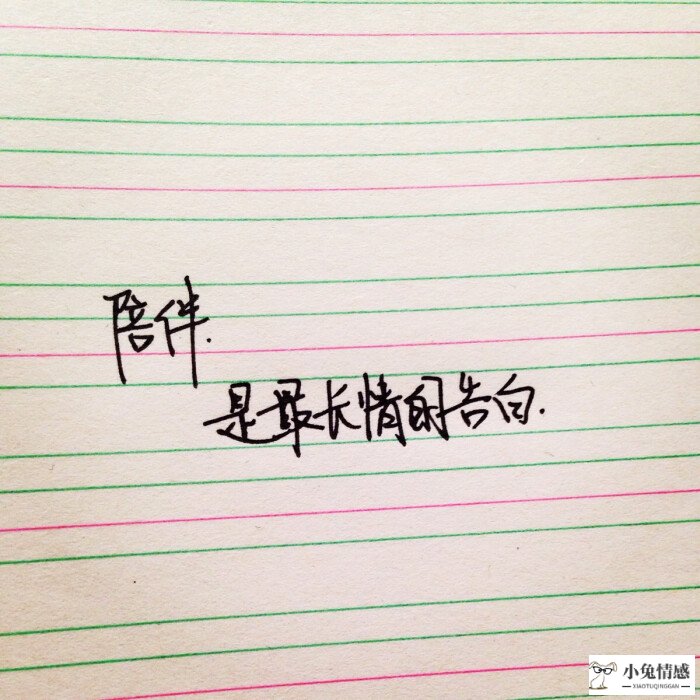 陪伴.
是最长情的告白.
小兔情感
XIAOTUQINGGAN